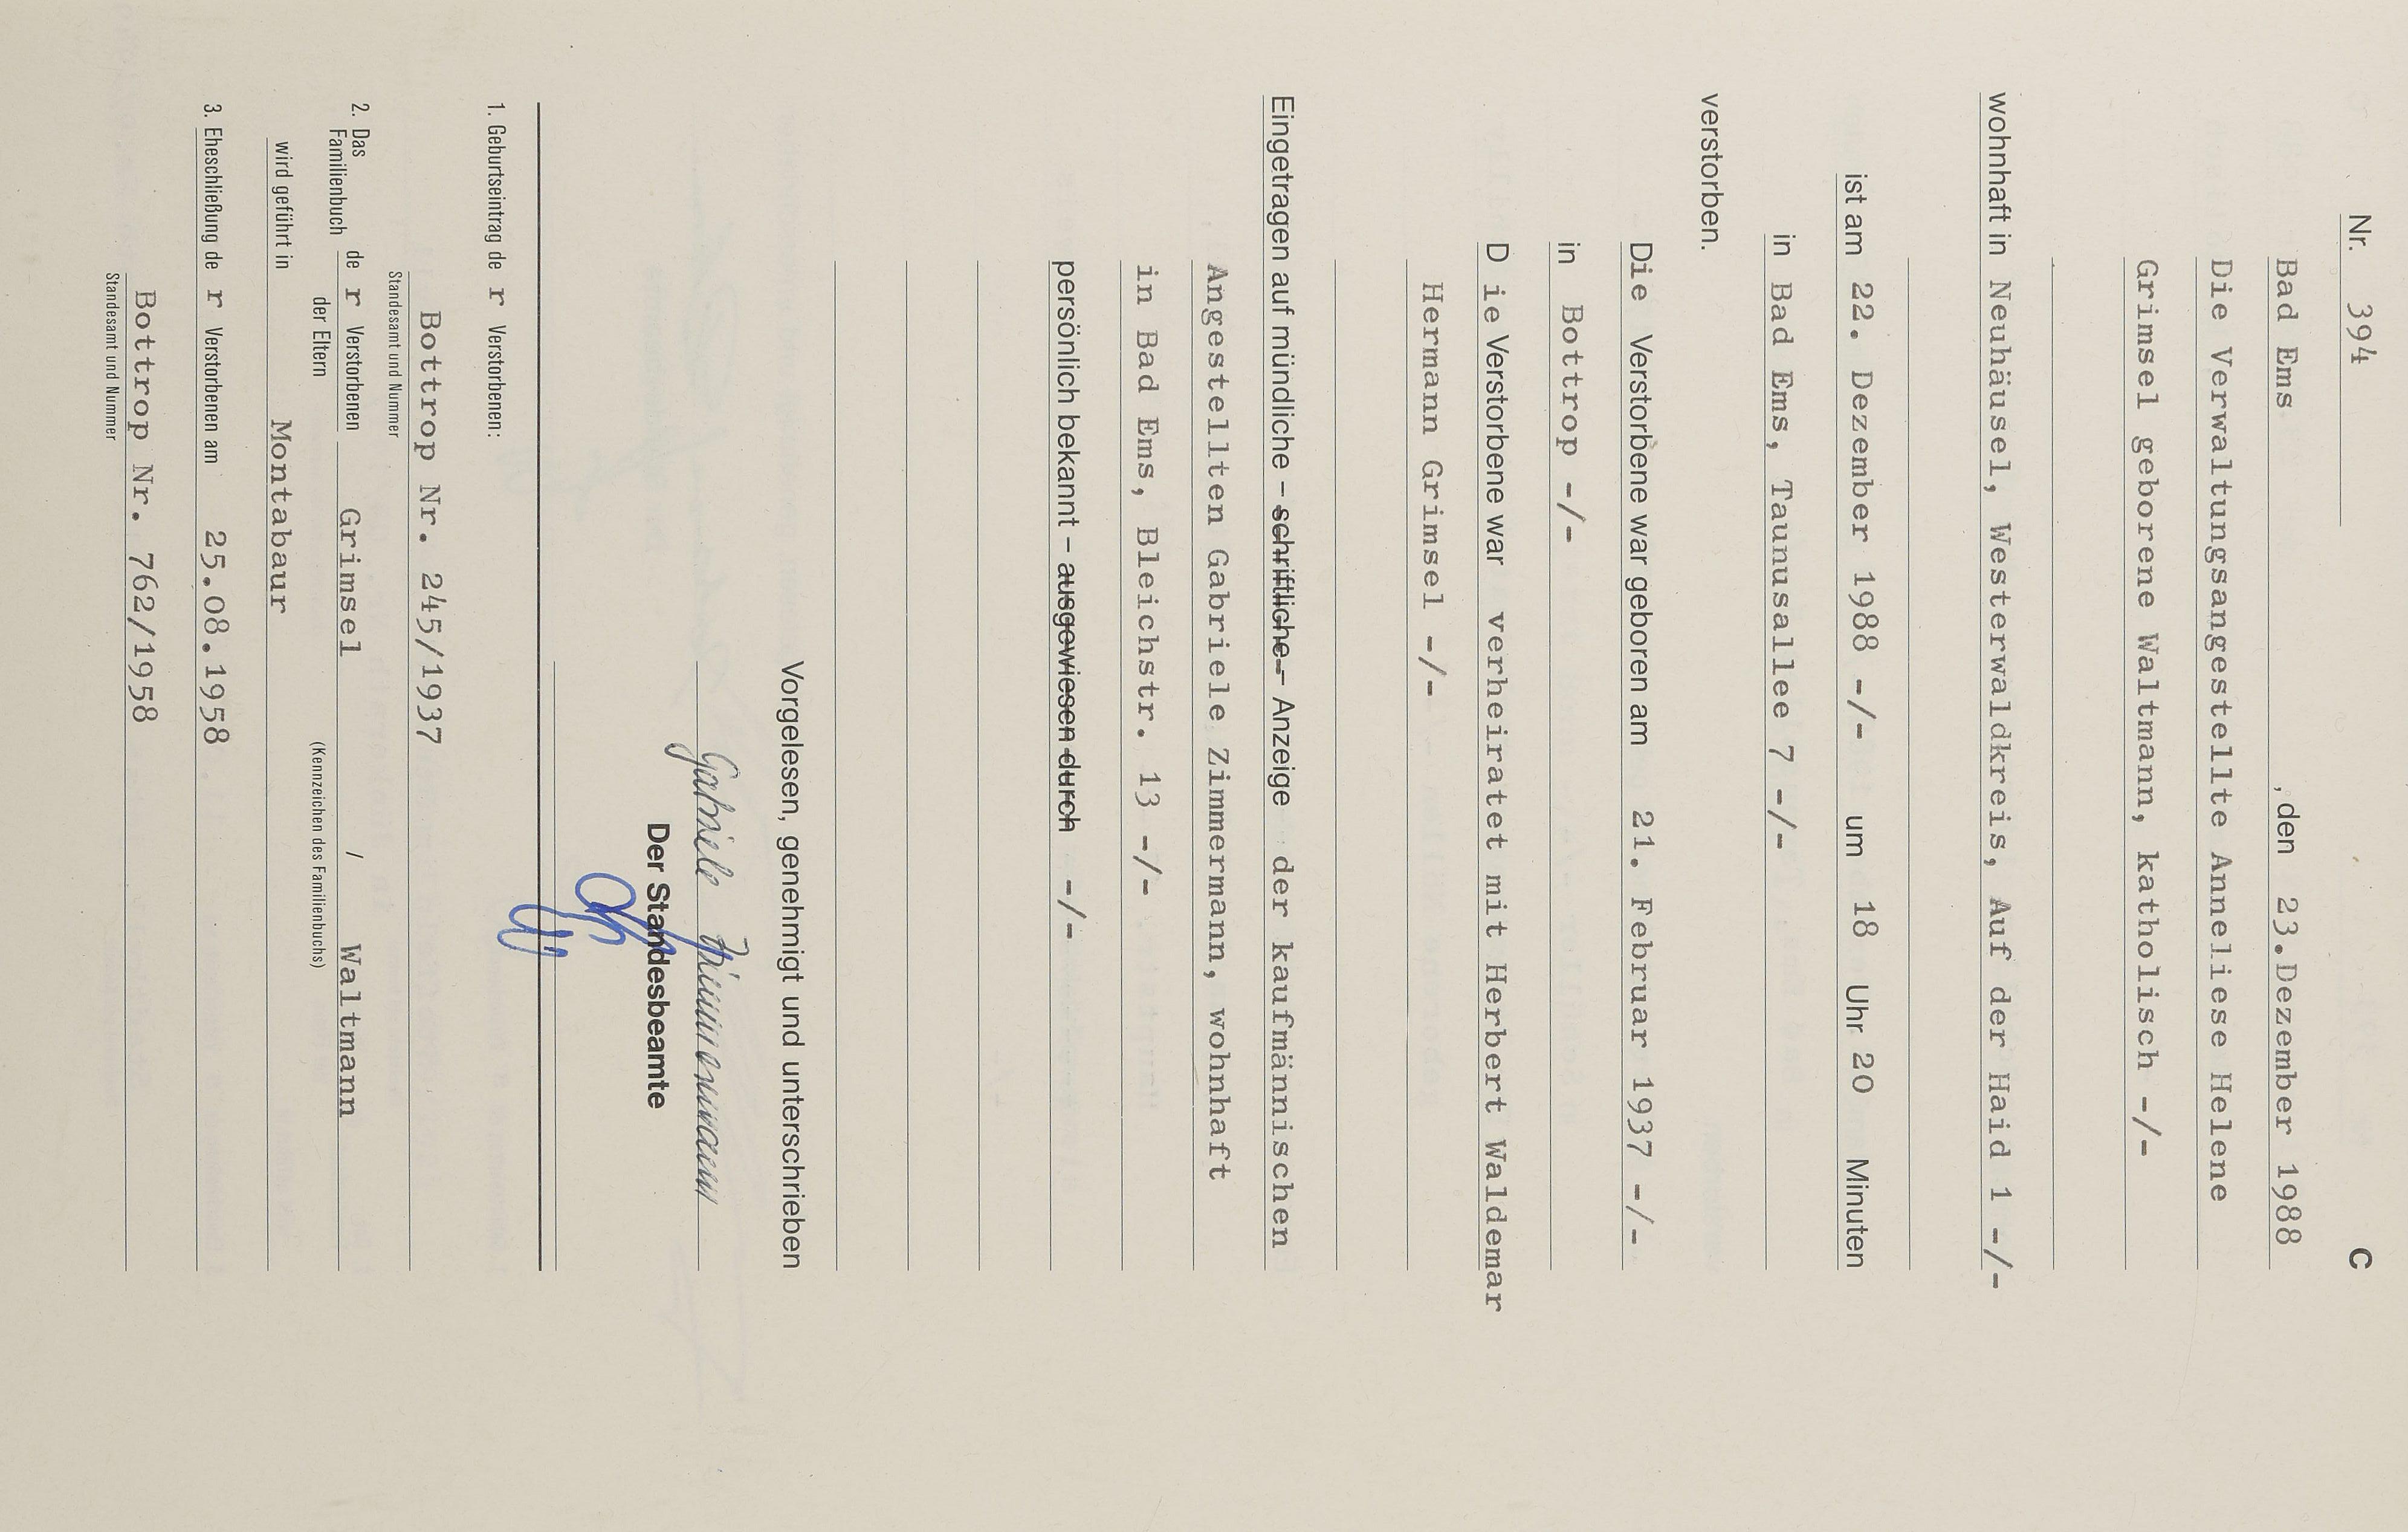 Nr. 394 C
Bad Ems, den 23.Dezember 1988
Die Verwaltungsangestellte Anneliese Helene
Grimsel geborene Waltmann, katholisch -/-
wohnhaft in Neuhäusel, Westerwaldkreis, Auf der Haid 1 -/-
ist am 22. Dezember 1988 -/- um 18 Uhr 20 Minuten
in Bad Ems, Taunusallee 7 -/-
verstorben.
Die Verstorbene war geboren am 21. Februar 1937 -/-
in Bottrop -/-
D ie Verstorbene war verheiratet mit Herbert Waldemar
Hermann Grimsel -/-
Eingetragen auf mündliche – schriftliche – Anzeige der kaufmännischen
Angestellten Gabriele Zimmermann, wohnhaft
in Bad Ems, Bleichstr. 13 -/-
persönlich bekannt – ausgewiesen durch -/-
Vorgelesen, genehmigt und unterschrieben
Gabriele Zimmermann
Der Standesbeamte
1. Geburtseintrag de r Verstorbenen:
Bottrop Nr. 245/1937
Standesamt und Nummer
2. Das Familienbuch de r Verstorbenen Grimsel / Waltmann
der Eltern (Kennzeichen des Familienbuchs)
wird geführt in Montabaur
3. Eheschließung de r Verstorbenen am 25.08.1958
Bottrop Nr. 762/1958
Standesamt und Nummer